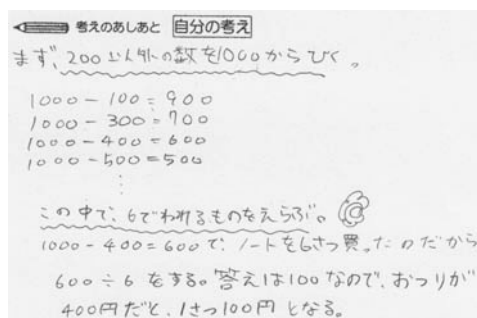 考えのあしあと 自分の考え
まず、200以外の数を1000からひく。
1000-100=900
1000-300=700
1000-400=600
1000-500=500
⋮
この中で、6でわれるものをえらぶ。
1000-400=600で、ノートを6さつ買ったのだから
600÷6をする。答えは100なので、おつりが
400円だと、1さつ100円となる。